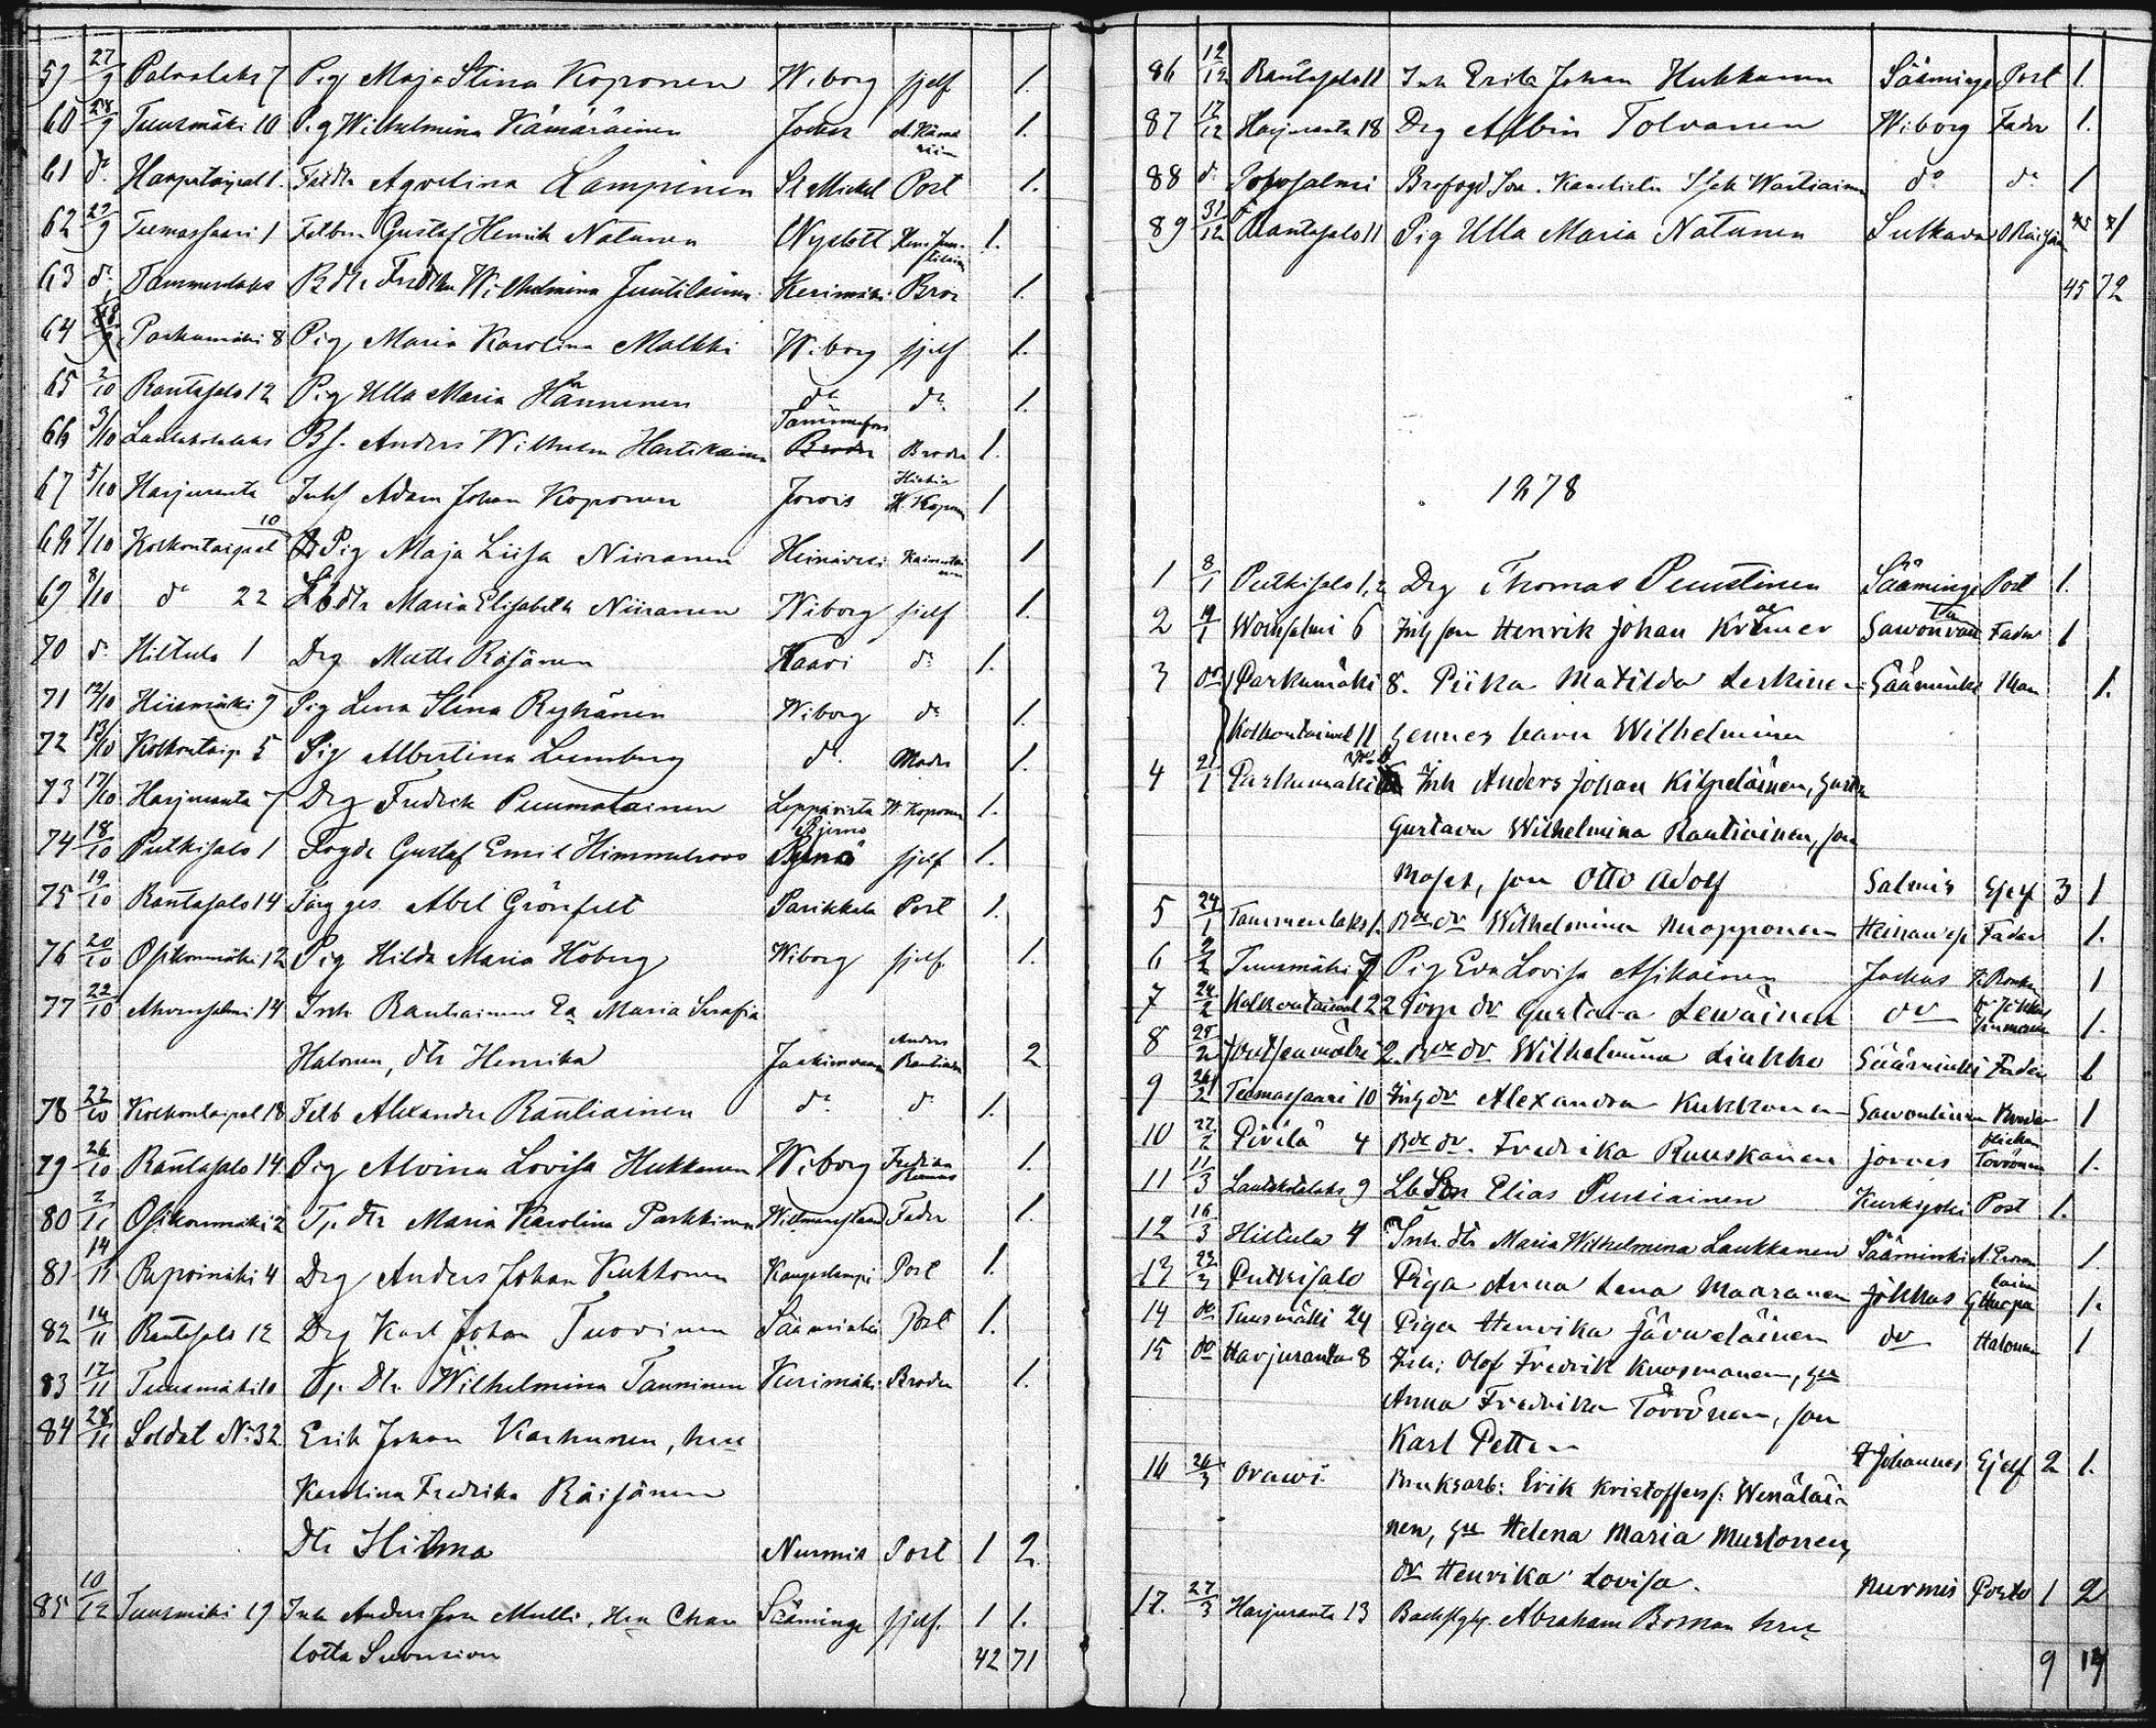 59 27/9 Palvalaks 7 Pig Maja Stina Koponen Wiborg sjelf 1.
60 28/9 Tuusmäki 10 Pig Wilhelmina Kämäräinen Jockas 1.
61 d:o Haapataipal 1. Agvelina Lampinen St Mickel Post 1.
62 29/9 Teemassaari 1 Gustaf Henrik Natunen Nyslott 1.
63 d:o Tammenlaks Wilhelmina Juutilainen Kerimäki Bror 1.
64 Parkumäki 8 Pig Maria Karolina Malkki Wiborg sjelf 1.
65 2/10 Rantasalo 12 Pig Ulla Maria Hänninen d:o d:o 1.
66 3/10 Bs. Anders Wilhelm Hartikainen Tammerfors Broder 1.
67 5/10 Harjuranta Inhs Adam Johan Koponen Jorois H. Koponen 1
68 7/10 Kolkontaipal 10 Pig Maja Liisa Niiranen Heinävesi 1
69 8/10 d:o 22 Lb dtr Maria Elisabeth Niiranen Wiborg sjelf 1.
70 d:o Hiltula 1 Drg Matts Räsänen Kaavi d:o 1.
71 12/10 Hiismäki 9 Pig Lena Stina Ryhänen Wiborg d:o 1.
72 13/10 Kolkontaip 5 Pig Albertina Lemberg d:o Moder 1.
73 17/10 Harjuranta 7 Drg Fredrik Puumalainen Leppävirta W. Koponen 1.
74 18/10 Putkisalo 1 Fogde Gustaf Emil Himmelroos Bjerno sjelf 1.
75 19/10 Rantasalo 14 Färg ges. Abel Grönfelt Parikkala Post 1.
76 20/10 Osikonmäki 12 Pig Hilda Maria Höberg Wiborg sjelf 1.
77 22/10 Ahvensalmi 14 Inh. Maria Serafia
Halonen, dtr Henrika Anders Rautiainen 2
78 22/10 Kolkontaipal 18 Felb Alexander Rautiainen d:o d:o 1.
79 26/10 Rantasalo 14. Pig Alvina Lovisa Hukkanen Wiborg 1.
80 2/11 Osikonmäki 2 Tp. dtr Maria Karolina Parkkinen Wilmanstrand Fader 1.
81 14/11 Repoimäki 4 Drg Anders Johan Kukkonen Kangaslampi Post 1.
82 14/11 Rantasalo 12 Drg Karl Johan Tuovinen Sääminki Post 1.
83 17/11 Tuusmäki 10 Tp. Dtr. Wilhelmina Tanninen Kerimäki Broder 1.
84 28/11 Soldat No 32 Erik Johan Karhunen, hru
Karolina Fredrika Räisänen
Dtr Hilma Nurmis Post 1 2
85 10/12 Tuusmäki 19 Inh Anders Joh Mulli, Hru Char Sääminge sjelf. 1 1.
lotta 42 71
86 12/12 Rantasalo 11 Inh Erik Johan Hukkanen Sääminge Post 1.
87 17/12 Harjuranta 18 Drg Albin Tolvanen Wiborg Fader 1.
88 d:o Joensalmi d:o d:o 1
89 31/12 Rantasalo 11 Pig Ulla Maria Natunen Sulkava
45 72
1878
1 8/1 Putkisalo 1, 2 Drg Thomas Puustinen Sääminge Post 1.
2 19/1 Woinsalmi 6 Inh son Henrik Johan Krömer Fader 1
3 do Parkumäki 8. Piika Matilda Leskinen Sääminki Man 1.
Kolkontaival 11 hennes barn Wilhelmina
4 21/1 Parkumäki Inh Anders Johan Kilpeläinen, hustru
Gustava Wilhelmina Rautiainen, son
Moses, son Otto Adolf Salmis Sjelf 3 1
5 24/1 Tammenlaks 1. Wilhelmina Muoponen Heinawesi Fader 1.
6 2/2 Tuusmäki 7 Pig Eva Lovisa Asikainen Jockas 1
7 24/2 Kolkontaival 22 Torp dr Gustava Lewäinen do 1.
8 25/2 2. dr Wilhelmina Liukko Sääminki Fader 1
9 26/2 Teemassaari 10 Inh dr Alexandra Kukkonen Sawonlinna 1
10 27/2 Pirilä 4 dr. Fredrika Ruuskanen Jorois Torvönen 1.
11 11/3 9 Lb Son Elias Pursiainen Kurkijoki Post 1.
12 16/3 Hiltula 4 Inh. dtr Maria Wilhelmina Laukkanen Sääminki 1.
13 23/3 Putkisalo Piga Anna Lena Maaranen Jokkas 1.
14 do Tuusmäki 24 Piga Henrika Järweläinen do Halonen 1
15 do Harjuranta 8 Inh: Olof Fredrik Kuosmanen, hu
Anna Fredrika Torvönen, son
Karl Petter St Johannes Sjelf 2 1.
16 26/3 Orawi Bruksarb: Erik Kristoffers: Wenäläi-
nen, hu Helena Maria Mustonen,
dr Henrika Lovisa. Nurmis Posto 1 2
17. 27/3 Harjuranta 13 Abraham Boman hru
9 14